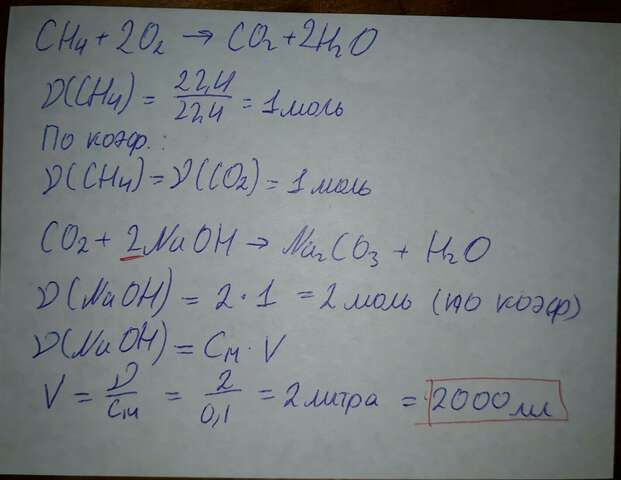 CH4 + 2O2 → CO2 + 2H2O
ν(CH4) = 22,4/22,4 = 1 моль
По коэф.:
ν(CH4) = ν(CO2) = 1 моль
CO2 + 2NaOH → Na2CO3 + H2O
ν(NaOH) = 2·1 = 2 моль (по коэф)
ν(NaOH) = Cм·V
V = ν/Cм = 2/0,1 = 2 литра = 2000 мл